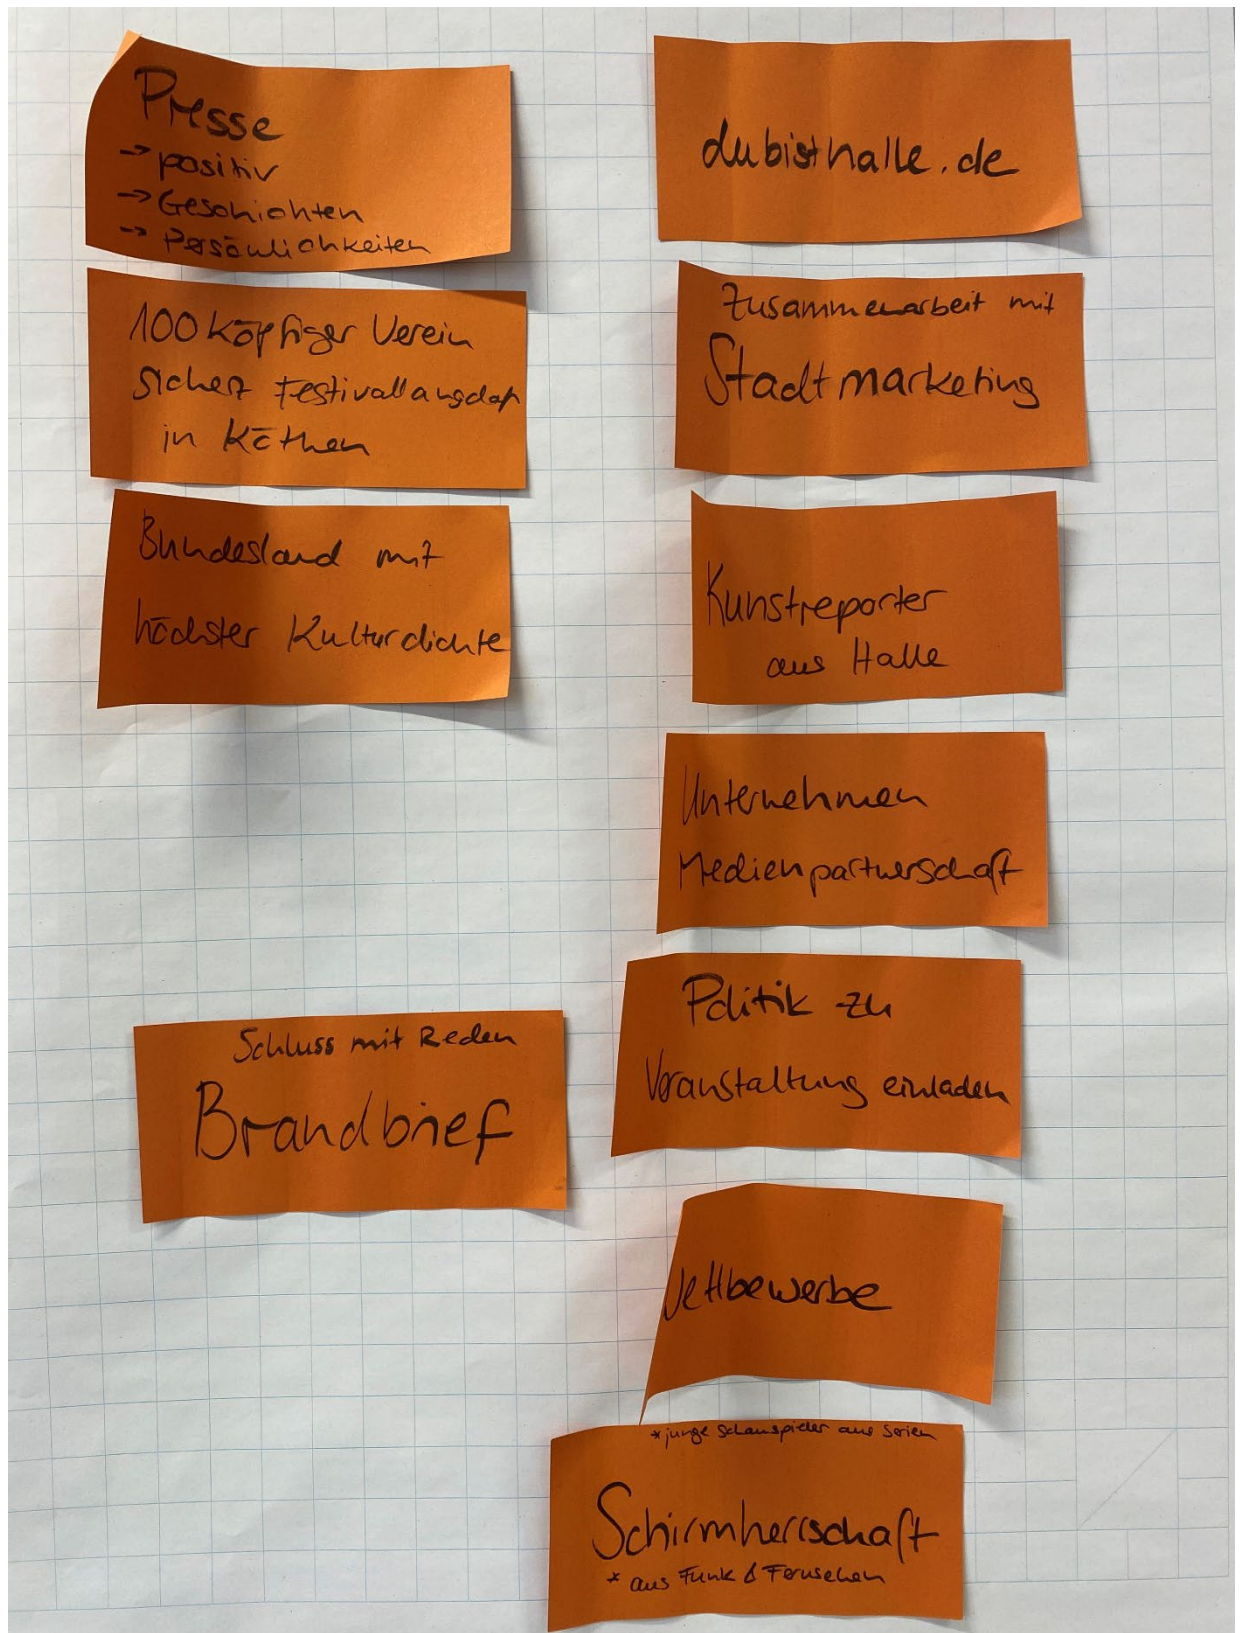 Presse
-> positiv
-> Geschichten
-> Persönlichkeiten
100 köpfiger Verein
sichert
in Köthen
Bundesland mit
höchster Kulturdichte
Schluss mit Reden
Brandbrief
dubisthalle.de
Zusammenarbeit mit
Stadtmarketing
Kunstreporter
aus Halle
Unternehmen
Medienpartnerschaft
Politik zu
Veranstaltung einladen
Wettbewerbe
* junge Schauspieler aus Serien
Schirmherrschaft
* aus Funk & Fernsehen